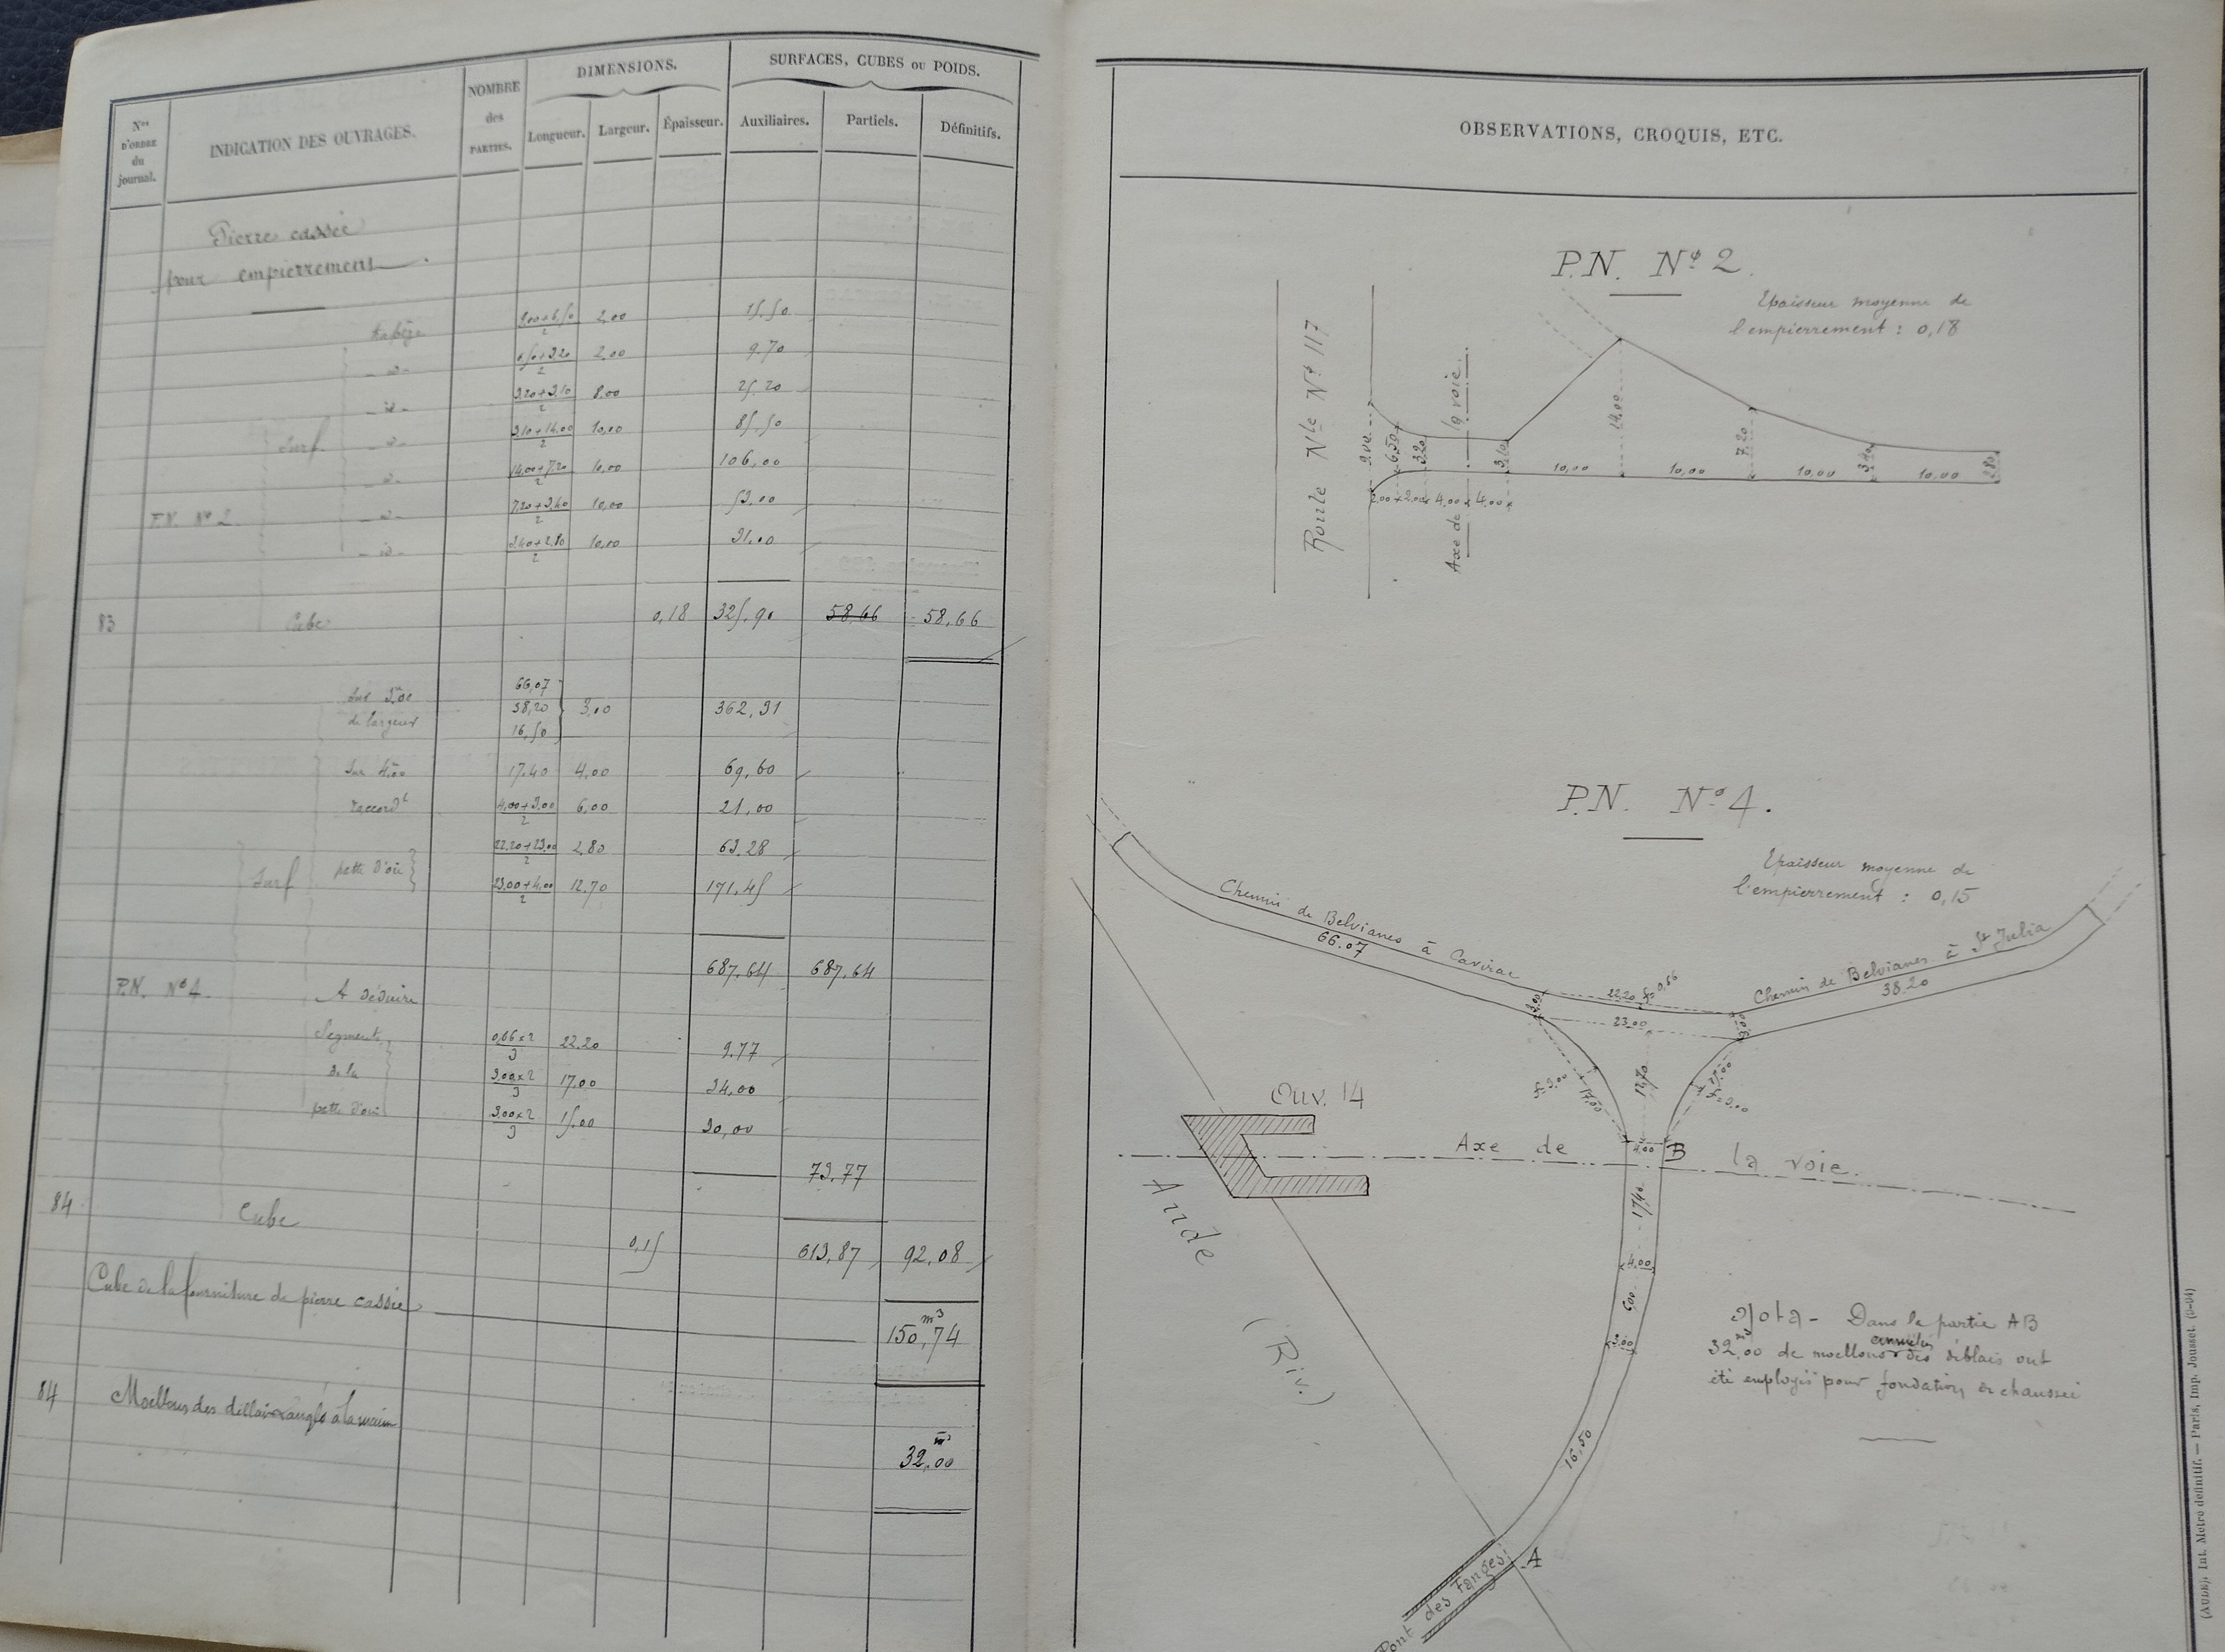 Nos D'ORDRE du journal.
INDICATION DES OUVRAGES.
NOMBRE des PARTIES.
DIMENSIONS.
Longueur. Largeur. Épaisseur.
SURFACES, CUBES OU POIDS.
Auxiliaires. Partiels. Définitifs.
Pierre cassée
pour empierrement
trapèze 9.00+6.50/2 2,00 15.50
_ id _ 6.50+3.20/2 2.00 9.70
_ id _ 3.20+3.10/2 8.00 25.20
Surf. _ id _ 3.10+14.00/2 10,00 85.50
_ id _ 14.00+7.20/2 10,00 106,00
P.N. No 2. _ id _ 7.20+3.40/2 10,00 53.00
_ id _ 3.40+2.80/2 10,00 31.00
83 Cube 0,18 325.90 58,66 58,66
Sur 3m00 de largeur 66,07 38,20 16,50 3,00 362,31
Sur 4m00 17.40 4,00 69,60
raccordt 4,00+3,00/2 6,00 21,00
Surf patte d'oie 22.20+23,00/2 2,80 63.28
23,00+4,00/2 12.70 171.45
687.64 687,64
P.N. No 4. A déduire
Segments 0,66x2/3 22.20 9.77
de la 3.00x2/3 17.00 34,00
patte d'oie 3,00x2/3 15.00 30,00
73.77
84 Cube 0,15 613,87 92,08
Cube de la fourniture de pierre cassée 150,74 m3
84 Moellons des déblais rangés à la main
32,00 m3
OBSERVATIONS, CROQUIS, ETC.
P.N. No 2.
Epaisseur moyenne de
l'empierrement : 0,18
Route Nle No 117
Axe de la voie
9.00 6,50 3,20 3,10 14,00 7,20 3,40 2,80
2,00 2,00 4,00 4,00 10,00 10,00 10,00 10,00
P.N. No 4.
Epaisseur moyenne de
l'empierrement : 0,15
Chemin de Belvianes à Cavirac
66.07
Chemin de Belvianes à St Julia
38.20
22.20 f=0,66
23,00
3,00 3,00
f=3,00 17,00 12,70 15,00 f=3,00
Ouv. 14
Axe de la voie.
4,00 B
17,40
4,00
6,00
3,00
16,50
A
Aude
(Riv.)
Pont des Fanges
Nota - Dans la partie AB
32m3,00 de moellons des déblais ont
été employés pour fondation de chaussée
(AUDE). Int. Metre définitif. — Paris, Imp. Jousset. (9-04)